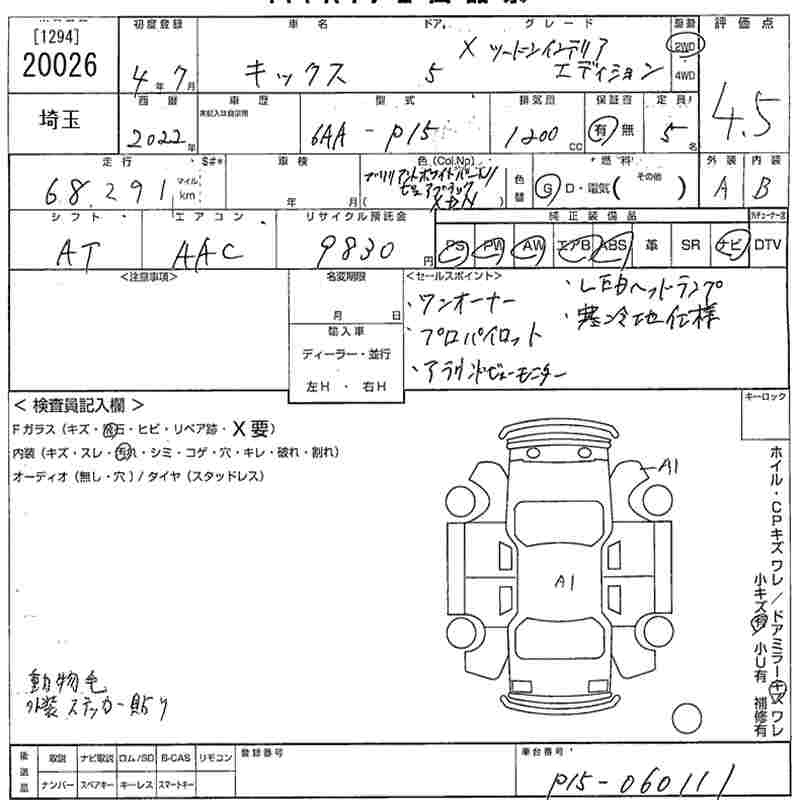 [1294]
20026
初度登録 車名 ドア グレード 評価点
4年7月 キックス 5 X ツートーンインテリア
エディション
2WD
4WD
4.5
埼玉
西暦 車歴 型式 排気図 保証書 定員
2022年 6AA-P15 1200cc 有 無 5名
走行 $#* 車検 色(Col,No) 燃料 外装 内装
68,291 マイル km 年 月 ブリリアントホワイトパール/
ピュアブラック
色替 G D・電気( その他 ) A B
シフト エアコン リサイクル預託金 純正装備品
AT AAC 9830円 PS PW AW エアB ABS 革 SR ナビ DTV
<注意事項> 名変期限 <セールスポイント>
月 日
・ワンオーナー ・LEDヘッドランプ
・プロパイロット ・寒冷地仕様
・アラウンドビューモニター
輸入車
ディーラー・並行
左H ・ 右H
<検査員記入欄>
キーロック
Fガラス(キズ・飛石・ヒビ・リペア跡・X要)
内装(キズ・スレ・汚れ・シミ・コゲ・穴・キレ・破れ・割れ)
オーディオ(無し・穴)/タイヤ(スタッドレス)
A1
A1
ホイル・CPキズワレ/ドアミラーキズワレ
小キズ有 小U有 補修有
動物毛
外装ステッカー貼り
後送品 取説 ナビ取説 ロム/SD B-CAS リモコン 登録番号 車台番号
ナンバー スペアキー キーレス スマートキー
P15-060111